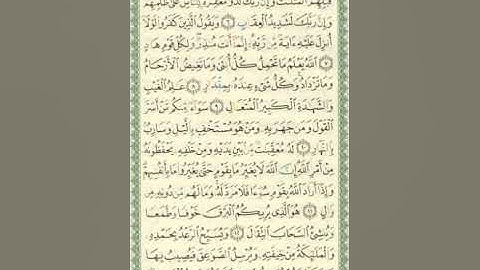 قَبْلِهِمُ ٱلْمَثُلَٰتُ وَإِنَّ رَبَّكَ لَذُو مَغْفِرَةٍ لِّلنَّاسِ عَلَىٰ ظُلْمِهِمْ
وَإِنَّ رَبَّكَ لَشَدِيدُ ٱلْعِقَابِ ٦ وَيَقُولُ ٱلَّذِينَ كَفَرُوا۟ لَوْلَآ
أُنزِلَ عَلَيْهِ ءَايَةٌ مِّن رَّبِّهِۦٓ إِنَّمَآ أَنتَ مُنذِرٌ وَلِكُلِّ قَوْمٍ هَادٍ
٧ ٱللَّهُ يَعْلَمُ مَا تَحْمِلُ كُلُّ أُنثَىٰ وَمَا تَغِيضُ ٱلْأَرْحَامُ
وَمَا تَزْدَادُ وَكُلُّ شَىْءٍ عِندَهُۥ بِمِقْدَارٍ ٨ عَٰلِمُ ٱلْغَيْبِ
وَٱلشَّهَٰدَةِ ٱلْكَبِيرُ ٱلْمُتَعَالِ ٩ سَوَآءٌ مِّنكُم مَّنْ أَسَرَّ
ٱلْقَوْلَ وَمَن جَهَرَ بِهِۦ وَمَنْ هُوَ مُسْتَخْفٍۭ بِٱلَّيْلِ وَسَارِبٌۢ
بِٱلنَّهَارِ ١٠ لَهُۥ مُعَقِّبَٰتٌ مِّنۢ بَيْنِ يَدَيْهِ وَمِنْ خَلْفِهِۦ يَحْفَظُونَهُۥ
مِنْ أَمْرِ ٱللَّهِ إِنَّ ٱللَّهَ لَا يُغَيِّرُ مَا بِقَوْمٍ حَتَّىٰ يُغَيِّرُوا۟ مَا بِأَنفُسِهِمْ
وَإِذَآ أَرَادَ ٱللَّهُ بِقَوْمٍ سُوٓءًا فَلَا مَرَدَّ لَهُۥ وَمَا لَهُم مِّن دُونِهِۦ مِن
وَالٍ ١١ هُوَ ٱلَّذِى يُرِيكُمُ ٱلْبَرْقَ خَوْفًا وَطَمَعًا
وَيُنشِئُ ٱلسَّحَابَ ٱلثِّقَالَ ١٢ وَيُسَبِّحُ ٱلرَّعْدُ بِحَمْدِهِۦ
وَٱلْمَلَٰٓئِكَةُ مِنْ خِيفَتِهِۦ وَيُرْسِلُ ٱلصَّوَٰعِقَ فَيُصِيبُ بِهَا